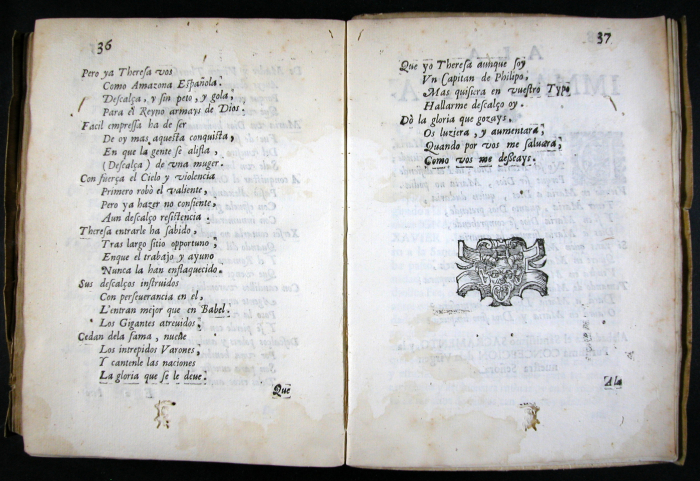 36
Pero ya Theresa vos
Como Amazona Española.
Descalça, y sin peto, y gola,
Para el Reyno armays de Dios.
Facil empressa ha de ser
De oy mas aquesta conquista,
En que la gente se alista,
(Descalça) de vna muger.
Con fuerça el Cielo y violencia
Primero robò el valiente,
Pero ya hazer no consiente,
Aun descalço resistencia.
Theresa entrarle ha sabido,
Tras largo sitio oportuno;
Enque el trabajo y ayuno
Nunca la han enflaquecido.
Sus descalços instruidos
Con perseuerancia en el,
L'entran mejor que en Babel.
Los Gigantes atreuidos.
Cedan dela fama,
Los intrepidos Varones,
Y cantenle las naciones
La gloria que se le deue.
Que
37
Que yo Theresa aunque soy
Vn Capitan de Philipo,
Mas quisiera en vuestro Typo
Hallarme descalço oy.
Dò la gloria que gozays,
Os luziera, y aumentarà,
Quando por vos me saluara,
Como vos me desseays.
A la